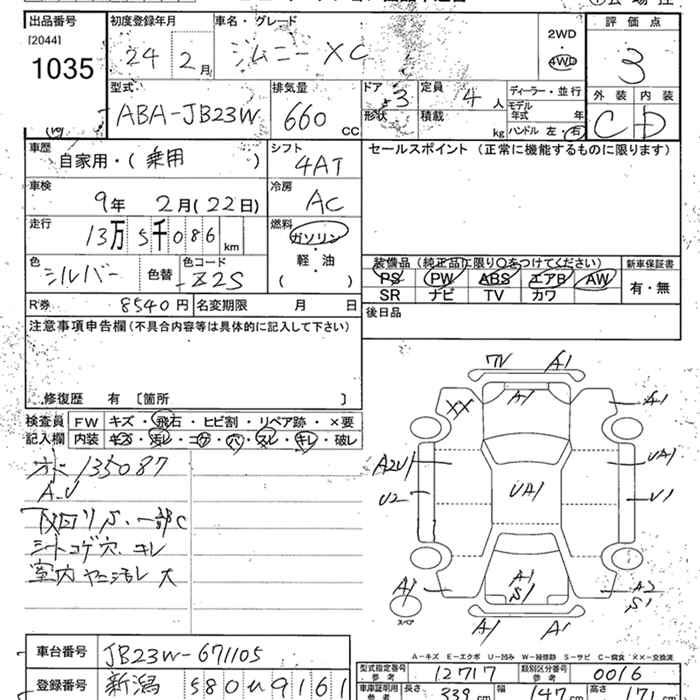 出品番号 初度登録年月 車名・グレード 評価点
[2044]
1035
24 2月 ジムニー XC 2WD 4WD 3
型式 排気量 ドア 定員 ディーラー・並行 外装 内装
ABA-JB23W 660 CC 3 4人 モデル年式 年 C D
形状 積載 kg ハンドル 左・右
車歴 シフト セールスポイント (正常に機能するものに限ります)
自家用・(乗用) 4AT
車検 冷房
9年 2月(22日) AC
走行 燃料
13万5千086km ガソリン
軽・油
色 色替 色コード 装備品(純正品に限り○をつけてください) 新車保証書
シルバー Z2S PS PW ABS エアB AW 有・無
SR ナビ TV カワ
R券 8540円 名変期限 月 日 後日品
注意事項申告欄(不具合内容等は具体的に記入して下さい)
修復歴 有 [箇所 ]
検査員 FW キズ・飛石・ヒビ割・リペア跡・×要
記入欄 内装 キズ・汚レ・コゲ・穴・スレ・キレ・破レ
135087
A.U
下回りS、一部C
シートコゲ穴、キレ
室内ヤニ汚レ大
TV A1
XX A1 A1
A2U1 UA1
U2 UA1 U1
A1 A1 A2
S1 S1
スペア
A1 A1
A-キズ E-エクボ U-凹み W-補修跡 S-サビ C-腐食 XX-交換済
車台番号 JB23W-671105
登録番号 新潟 580 U 9161
型式指定番号 参考 12717 類別区分番号 参考 0016
車庫証明用 参考 長さ 339cm 幅 147cm 高さ 171cm